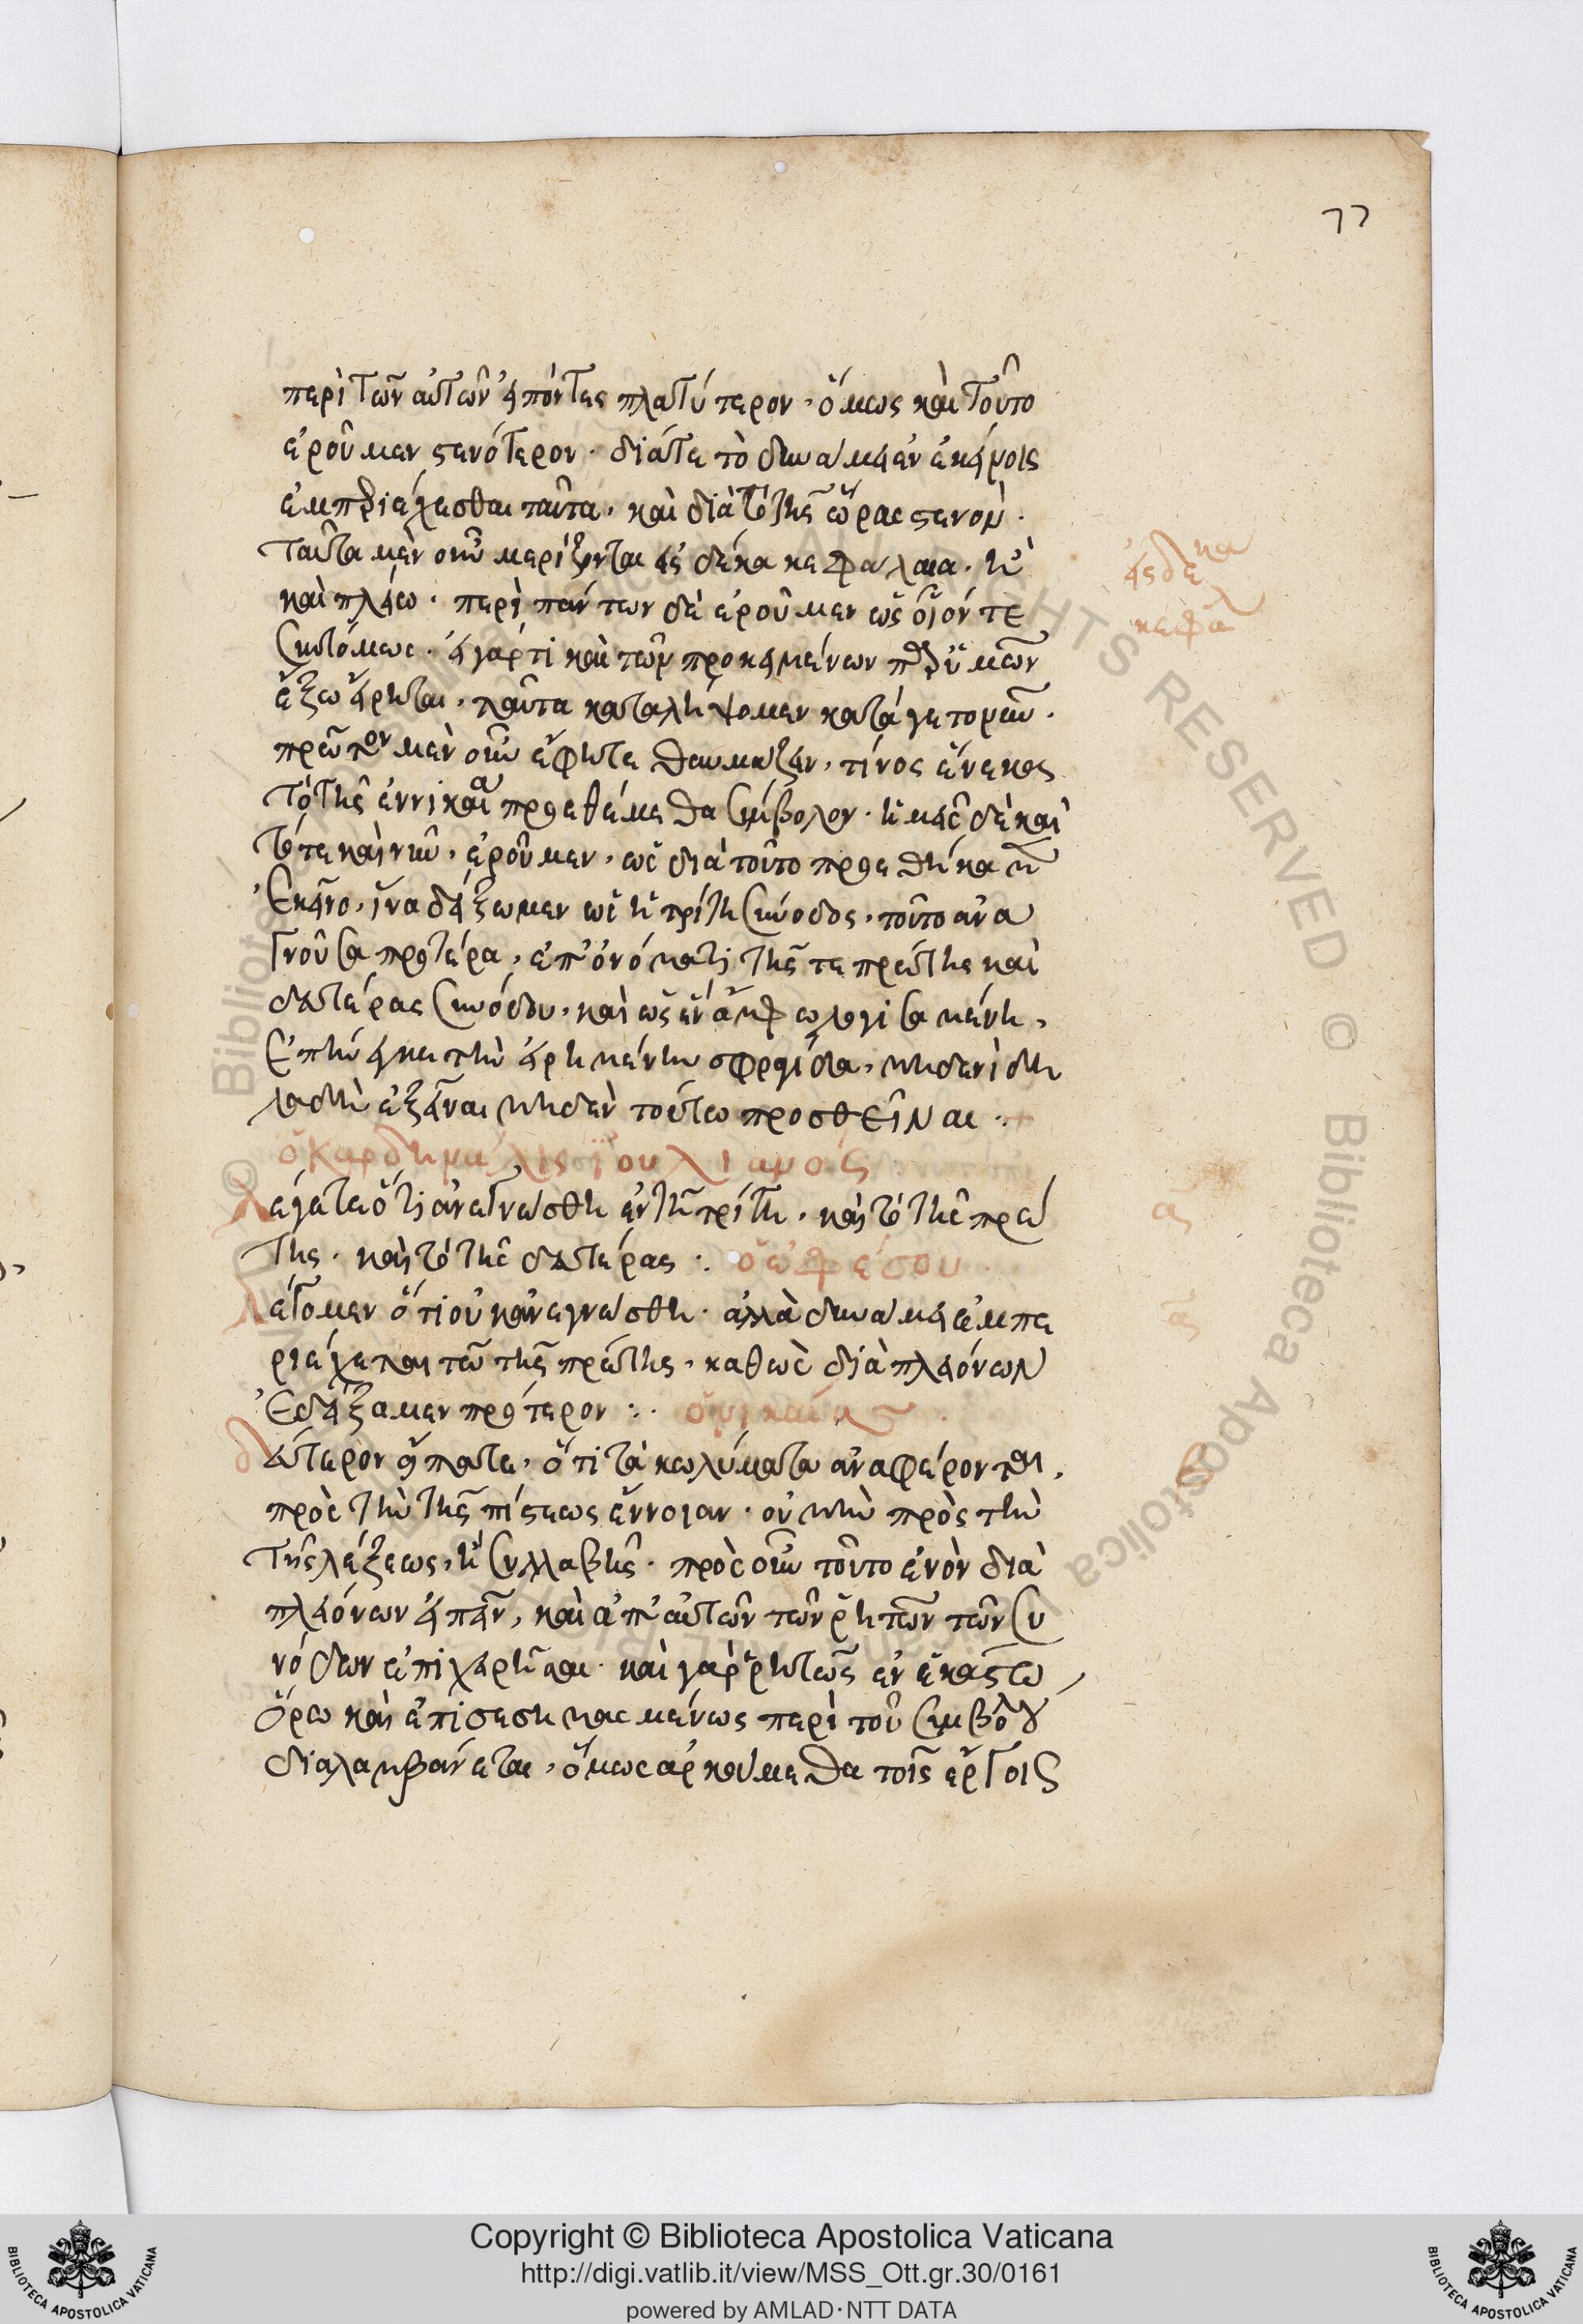 77
περὶ τῶν αὐτῶν εἰπόντες πλατύτερον, ὅμως καὶ τοῦτο
ἐροῦμεν στενότερον. διά τε τὸ δυνάμει ἐν ἐκείνοις
ἐμπεριέχεσθαι ταῦτα, καὶ διὰ τὸ τῆς ὥρας στενόν.
ταῦτα μὲν οὖν μερίζονται εἰς δέκα κεφάλαια. ἢ
καὶ πλείω. περὶ πάντων δὲ ἐροῦμεν ὡς οἷόν τε
συντόμως. εἰ γάρ τι καὶ τῶν προκειμένων παρ' ὑμῶν
ἔξω εἴρηται, πάντα καταλείψομεν κατά γε τὸ νῦν.
πρῶτον μὲν οὖν ἔφητε θαυμάζειν, τίνος ἕνεκα
τὸ τῆς ἐν νικαία προεθέμεθα σύμβολον. ἡμεῖς δὲ καὶ
τότε καὶ νῦν, ἐροῦμεν, ὡς διὰ τοῦτο προεθήκαμεν
ἐκεῖνο, ἵνα δείξωμεν ὡς ἡ τρίτη σύνοδος, τοῦτο ἀνα
γνοῦσα πρότερα, ἐπ' ὀνόματι τῆς τε πρώτης καὶ
δευτέρας συνόδου, καὶ ὡς ἓν ἄμφω λογισαμένη,
ἐπήνεγκε τὴν εἰρημένην σφραγίδα, μηδενὶ δη
λαδὴ ἐξεῖναι μηδὲν τούτω προσθεῖναι.
ὁ καρδηνάλις ἰουλιανός
λέγετε ὅτι ἀνεγνώσθη ἐν τῆ τρίτη, καὶ τὸ τῆς πρώ
της. καὶ τὸ τῆς δευτέρας :. ὁ ἐφέσου.
λέγομεν ὅτι οὐκ ἀνεγνώσθη. ἀλλὰ δυνάμει ἐμπε
ριέχεται τῶ τῆς πρώτης, καθὼς διὰ πλειόνων
ἐδείξαμεν πρότερον :. ὁ νικαίας.
δεύτερον εἴπατε, ὅτι τὰ κωλύματα ἀναφέρονται,
πρὸς τὴν τῆς πίστεως ἔννοιαν. οὐ μὴν πρὸς τὴν
τῆς λέξεως, ἢ συλλαβῆς. πρὸς οὖν τοῦτο ἐνὸν διὰ
πλειόνων εἰπεῖν, καὶ ἀπ' αὐτῶν τῶν ῥητῶν τῶν συ
νόδων ἐπιχειρῆσαι. καὶ γὰρ ῥητῶς ἐν ἑκάστω
ὅρω καὶ ἐπισεσημασμένως περὶ τοῦ συμβόλου
διαλαμβάνεται, ὅμως ἀρκούμεθα τοῖς ἔργοις
εἰς δέκα
κεφάλ
α
Copyright © Biblioteca Apostolica Vaticana
http://digi.vatlib.it/view/MSS_Ott.gr.30/0161
powered by AMLAD·NTT DATA
BIBLIOTECA APOSTOLICA VATICANA
BIBLIOTECA APOSTOLICA VATICANA